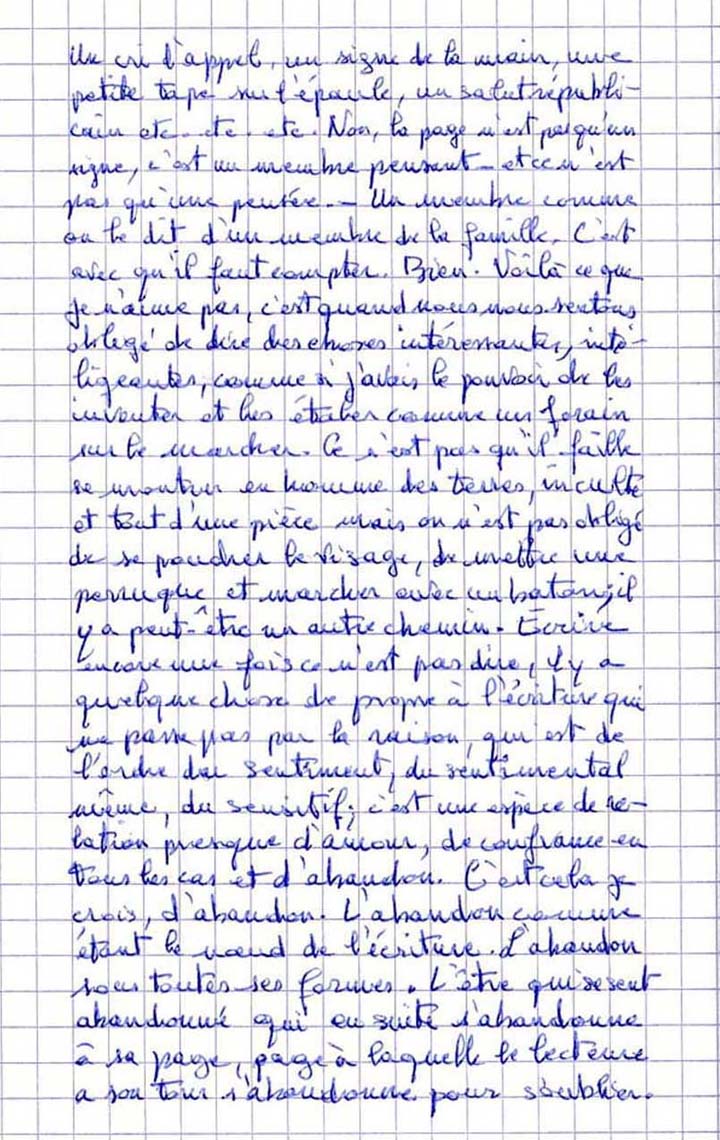 Un cri d'appel, un signe de la main, une
petite tape sur l'épaule, un salut républi-
cain etc. etc. etc. Non, la page n'est pas qu'un
signe, c'est un membre pensant - et ce n'est
pas qu'une pensée. - Un membre comme
on le dit d'un membre de la famille. C'est
avec qu'il faut compter. Bien. Voilà ce que
je n'aime pas, c'est quand nous nous sentons
obligé de dire des choses intéressantes, inté-
ligeantes, comme si j'avais le pouvoir de les
inventer et les étaler comme un forain
sur le marcher. Ce n'est pas qu'il faille
se montrer en homme des terres, inculte
et tout d'une pièce mais on n'est pas obligé
de se poudrer le visage, de mettre une
perruque et marcher avec un baton; il
y a peut-être un autre chemin. Ecrire
encore une fois ce n'est pas dire, il y a
quelque chose de propre à l'écriture qui
ne passe pas par la raison, qui est de
l'ordre du sentiment, du sentimental
même, du sensitif; c'est une espèce de re-
lation presque d'amour, de confiance en
tous les cas et d'abandon. C'est cela je
crois, d'abandon. L'abandon comme
étant le nœud de l'écriture. L'abandon
sous toutes ses formes. L'être qui se sent
abandonné qui en suite s'abandonne
à sa page, page à laquelle le lecteure
a son tour s'abandonne pour s'oublier.